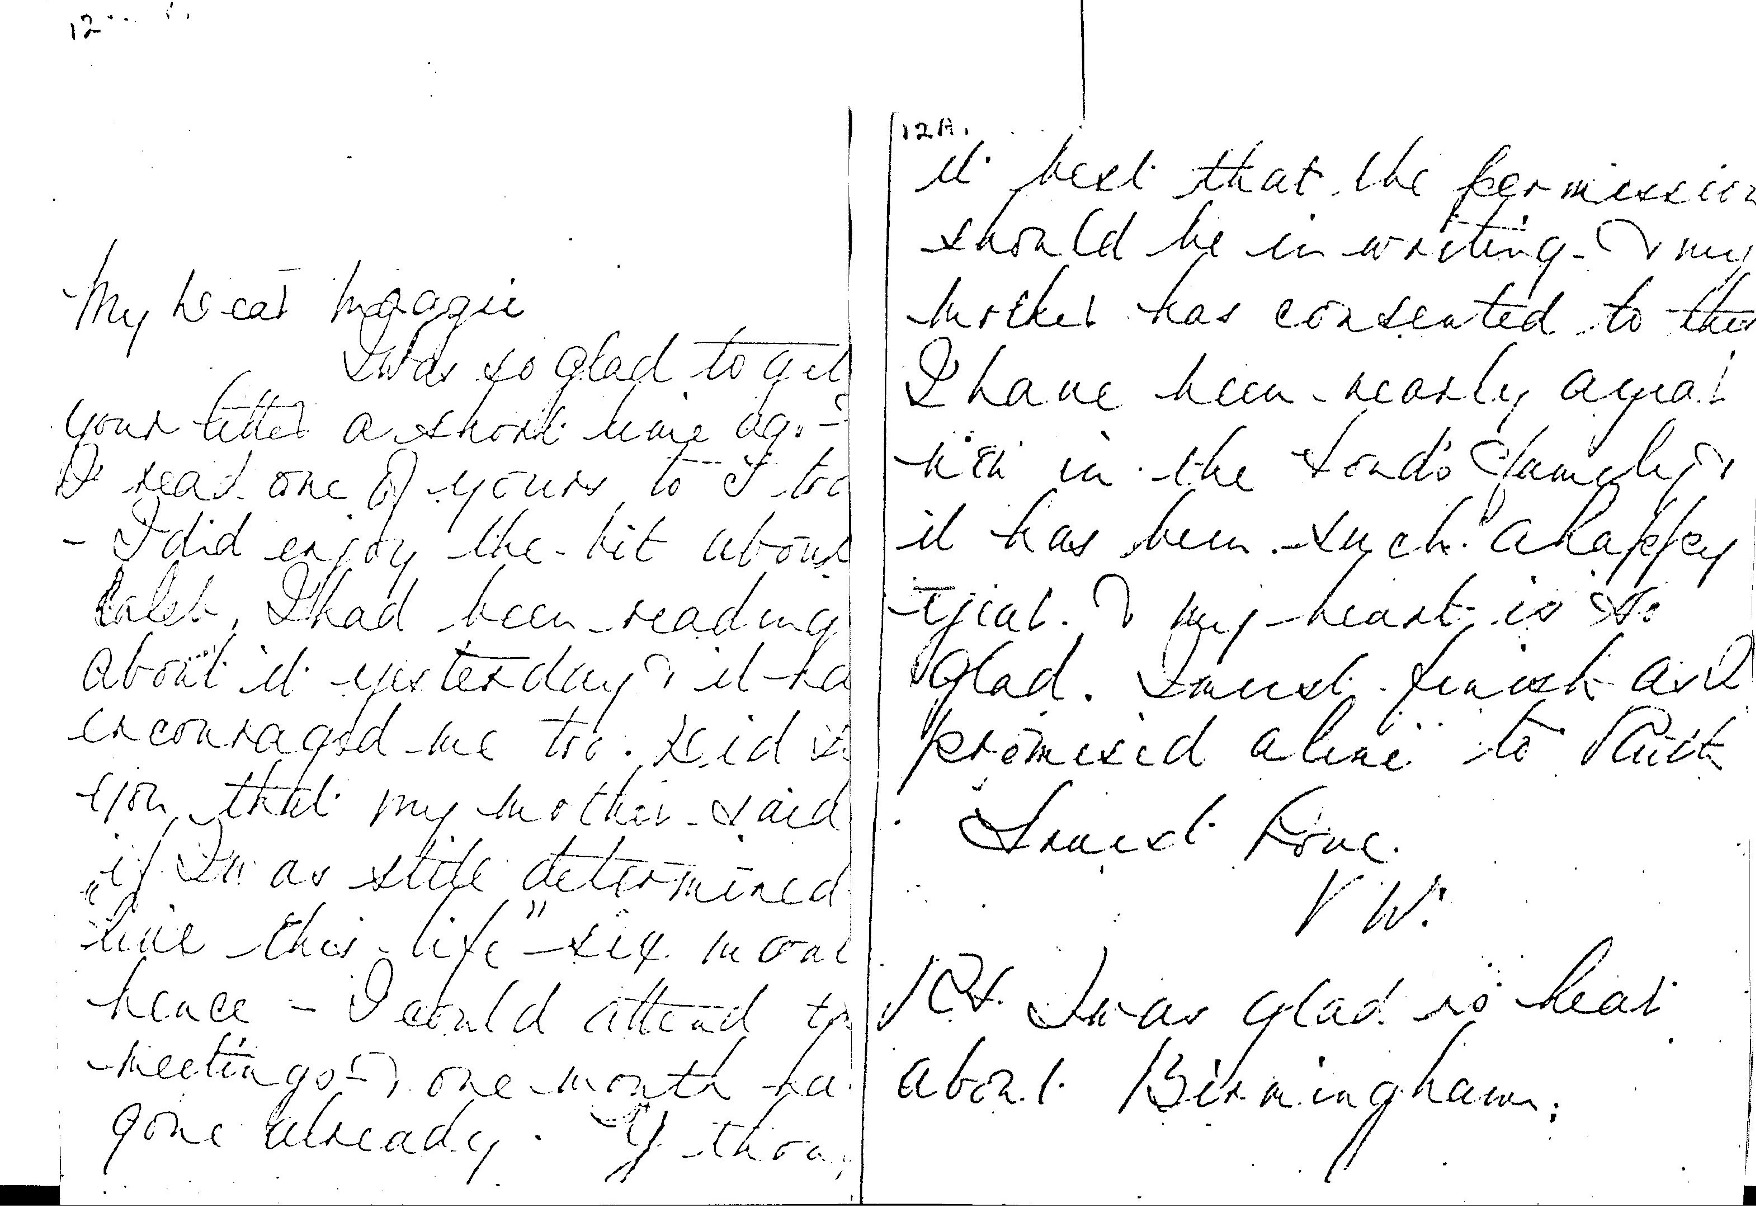 12
My Dear Maggie
I was so glad to get
your letter a short time ago -
I read one of yours to J too
- I did enjoy the bit about
Caleb, I had been reading
about it yesterday & it ha
encouraged me too. Did I
you that my mother said
if I was still determined
"live this life" - six mont
hence - I could attend
meetings - & one month ha
gone already. thou
12A.
it best that the permission
should be in writing - & my
Mother has consented to this
I have been nearly a year
now in the Lord's family &
it has been such a happy
year. & my heart is so
glad. I must finish as I
promised a line to Ruth
Love.
V W.
PS. I was glad to hear
about Birmingham.